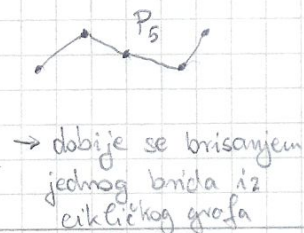 P5
→ dobije se brisanjem
jednog brida iz
cikličkog grafa